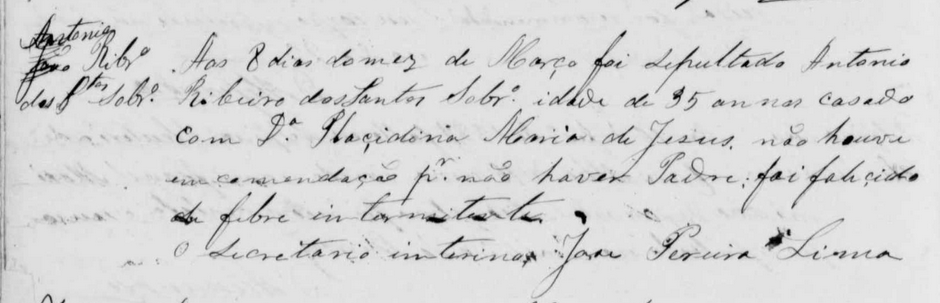 Antonio
João Ribrº
dos Stos Sobrº.
Aos 8 dias do mez de Março foi sepultado Antonio
Ribeiro dos Santos Sobrº. idade de 35 annos casado
com Dª Placidina Maria de Jesus. não houve
encomendação pr. não haver Padre. foi falicido
de febre intermitente.
O secretario interino, Jose Pereira Lima